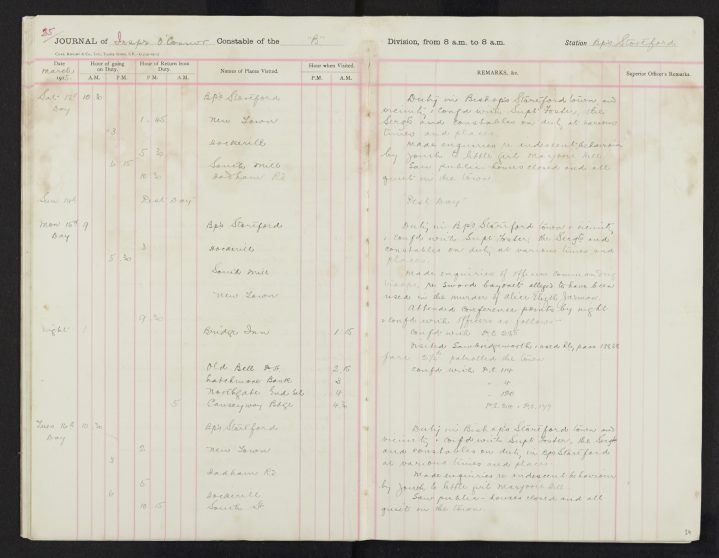 35
JOURNAL of Inspr O'Connor Constable of the "B" Division, from 8 a.m. to 8 a.m. Station Bp's Stortford
Date Hour of going on Duty. Hour of Return from Duty. Names of Places Visited. Hour when Visited. REMARKS, &c. Superior Officer's Remarks.
March 1915 A.M. P.M. P.M. A.M. P.M. A.M.
Sat 13th 10 30 Bp's Stortford Duty in Bishops Stortford town and
Day vicinity & confd with Supt Foster, the
1 45 New Town Sergts and constables on duty at various
3 times and places.
Hockerill Made enquiries re indecent behaviour
5 30 by youth to little girl Marjorie Dell
6 15 South Mill Saw public houses closed and all
10 30 Dadham Rd quiet in the town
Sun 14th Rest Day Rest Day
Mon 15th 9 Bp's Stortford Duty in Bp's Stortford town & vicinity,
Day & confd with Supt Foster, the Sergts and
3 Hockerill constables on duty at various times and
5 30 places.
South Mill Made enquiries of officers commanding
troops, re sword bayonet alleged to have been
New Town used in the murder of Alice Jarman
Attended conference points by night
9 30 & confd with officers as follows
Night 1 Bridge Inn 1 15 Confd with P.C.
Visited Sawbridgeworth
patrolled the town
Old Bell 2 15 Confd with P.C. 114
Bank 3
Northgate End 4
5 Causeway Bdge 4 30
Tues 16th 10 30 Bp's Stortford Duty in Bishops Stortford town and
Day vicinity & confd with Supt Foster, the Sergts
2 New Town and constables on duty in Bps Stortford
3 at various times and places.
Dadham Rd Made enquiries re indecent behaviour
5 by youth to little girl Marjorie Dell.
6 Hockerill Saw public-houses closed and all
10 15 South St quiet in the town.